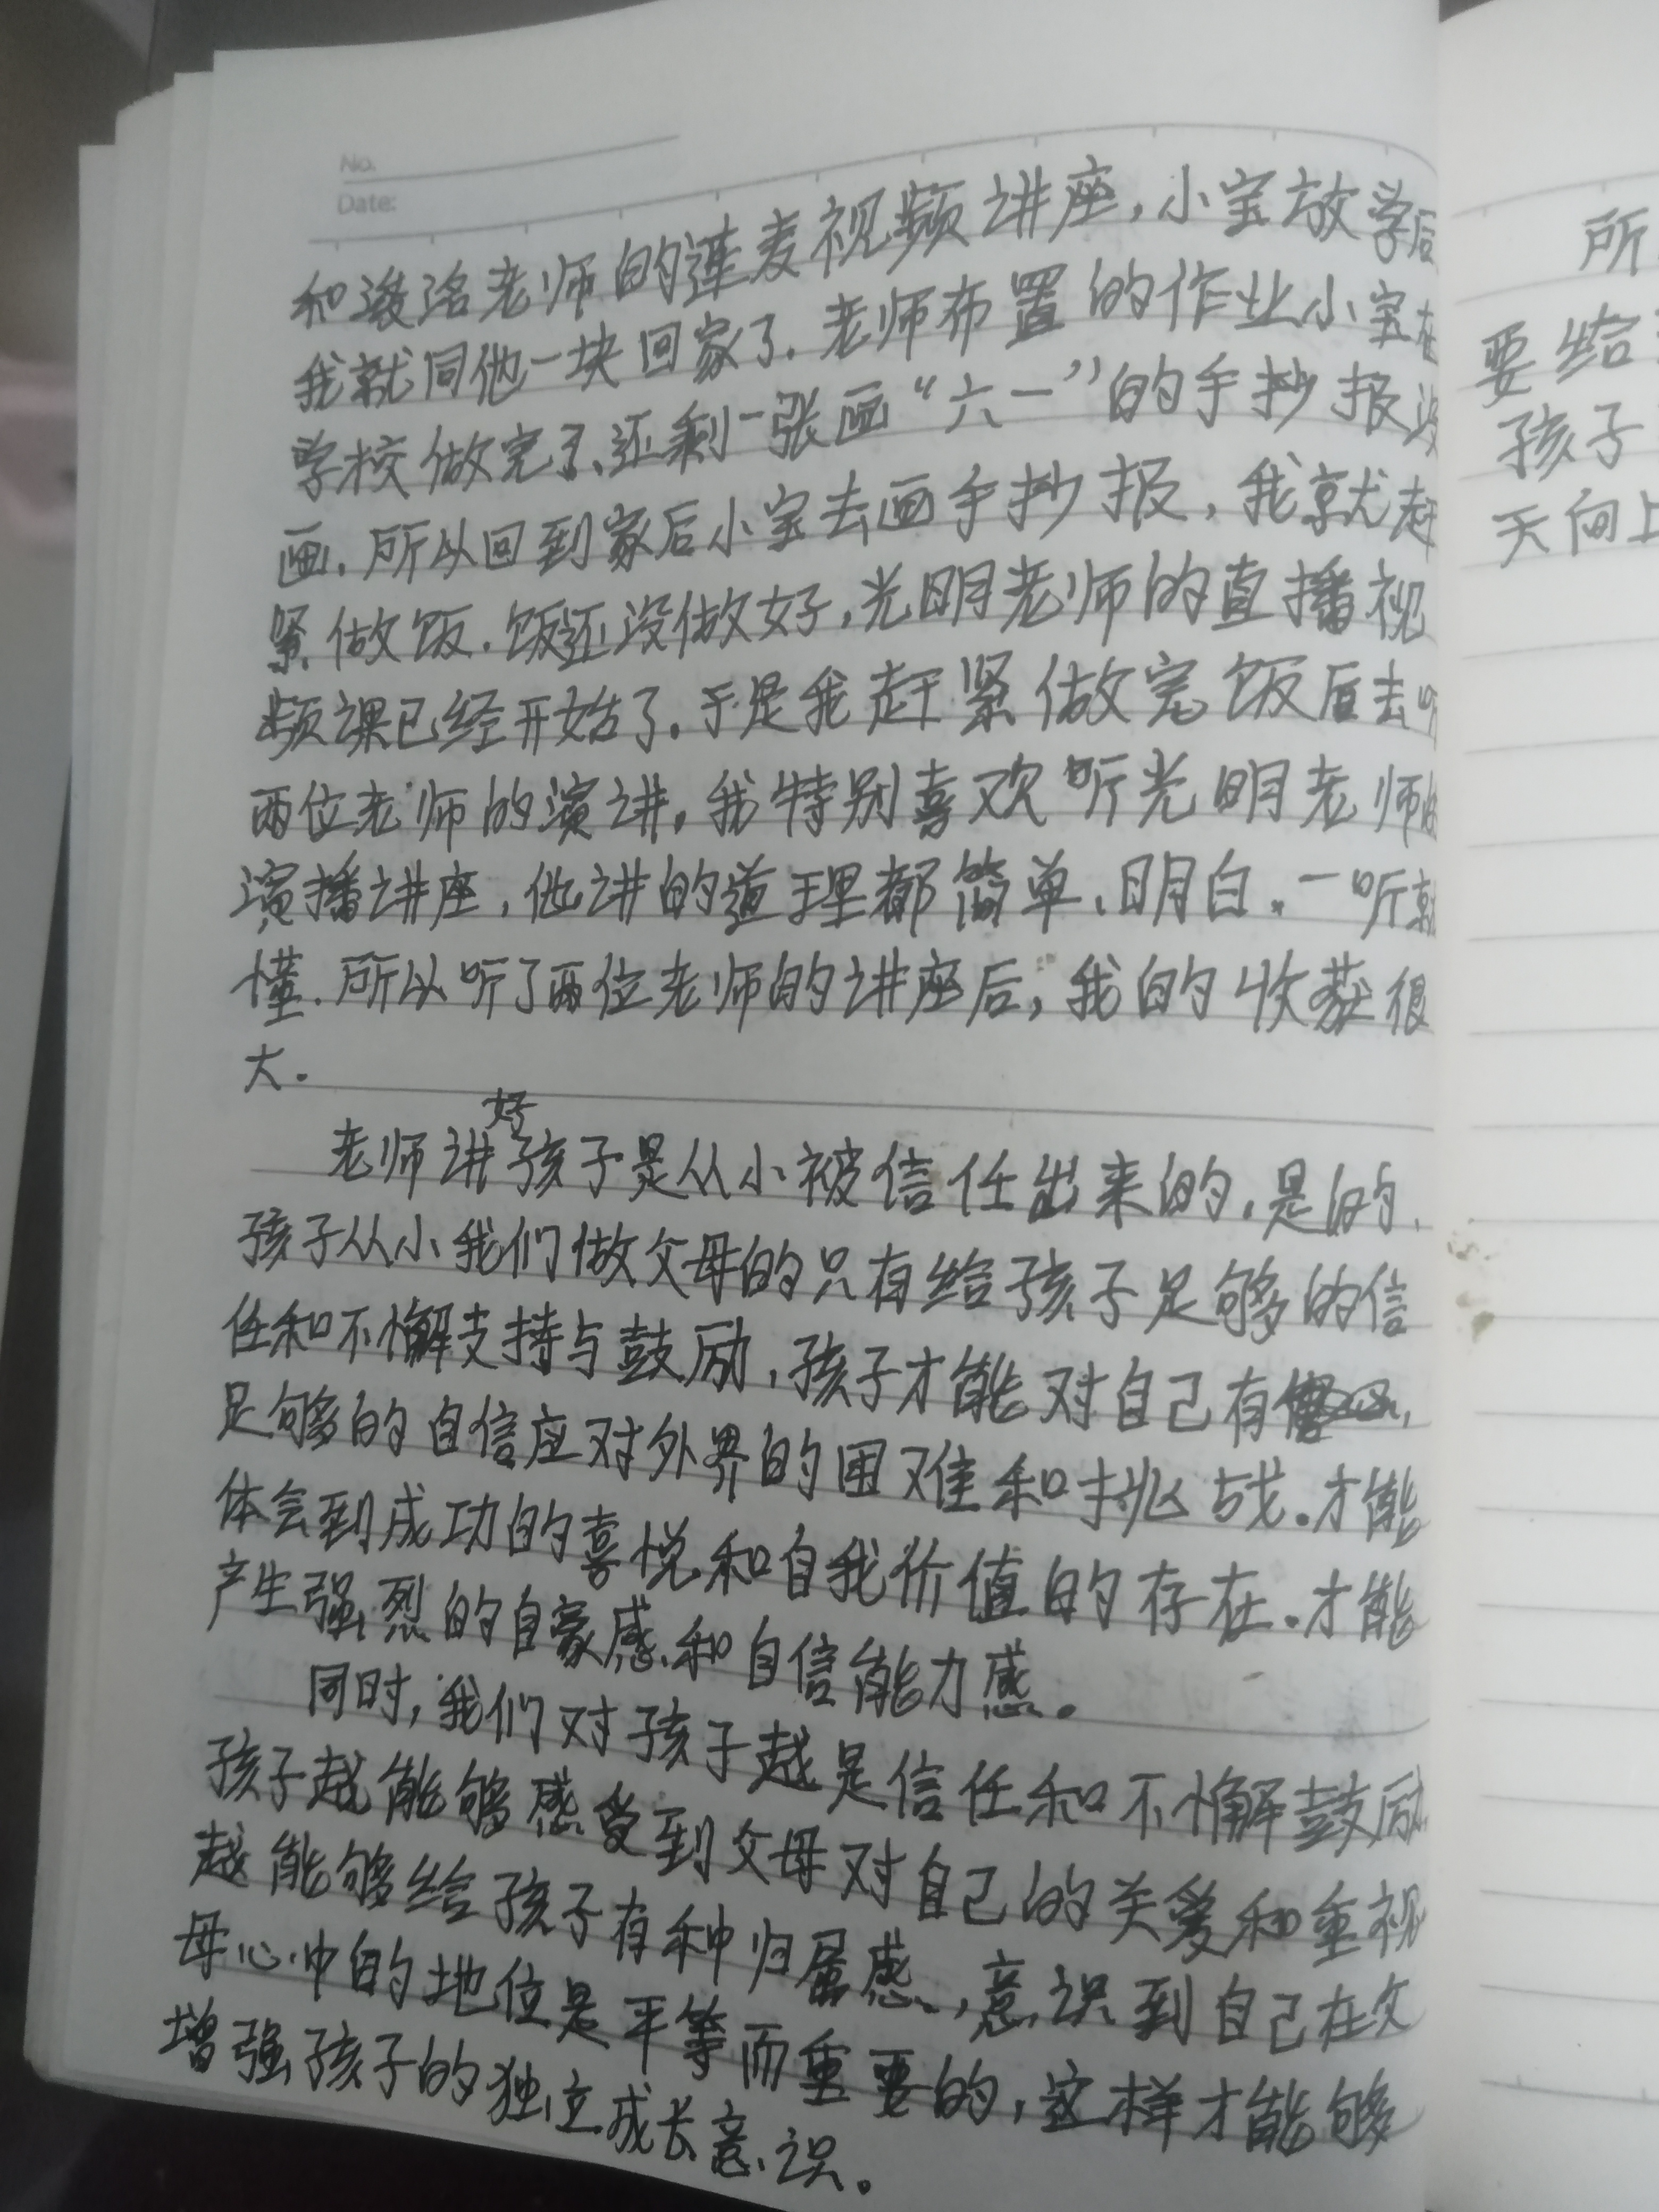 No.
Date:
和浚洛老师的连麦视频讲座，小宝放学后
我就同他一块回家了．老师布置的作业小宝在
学校做完了、还剩一张画“六一”的手抄报没
画．所以回到家后小宝去画手抄报，我就赶
紧做饭．饭还没做好，光明老师的直播视
频课已经开始了．于是我赶紧做完饭后去听
两位老师的演讲。我特别喜欢听光明老师的
演播讲座，他讲的道理都简单、明白．一听就
懂．所以听了两位老师的讲座后，我的收获很
大．
老师讲好孩子是从小被信任出来的．是的．
孩子从小我们做父母的只有给孩子足够的信
任和不懈支持与鼓励，孩子才能对自己有
足够的自信应对外界的困难和挑战．才能
体会到成功的喜悦和自我价值的存在．才能
产生强烈的自豪感和自信能力感。
同时，我们对孩子越是信任和不懈鼓励
孩子越能够感受到父母对自己的关爱和重视
越能够给孩子有种归属感，意识到自己在父
母心中的地位是平等而重要的，这样才能够
增强孩子的独立成长意识。
所
要给
孩子
天向上